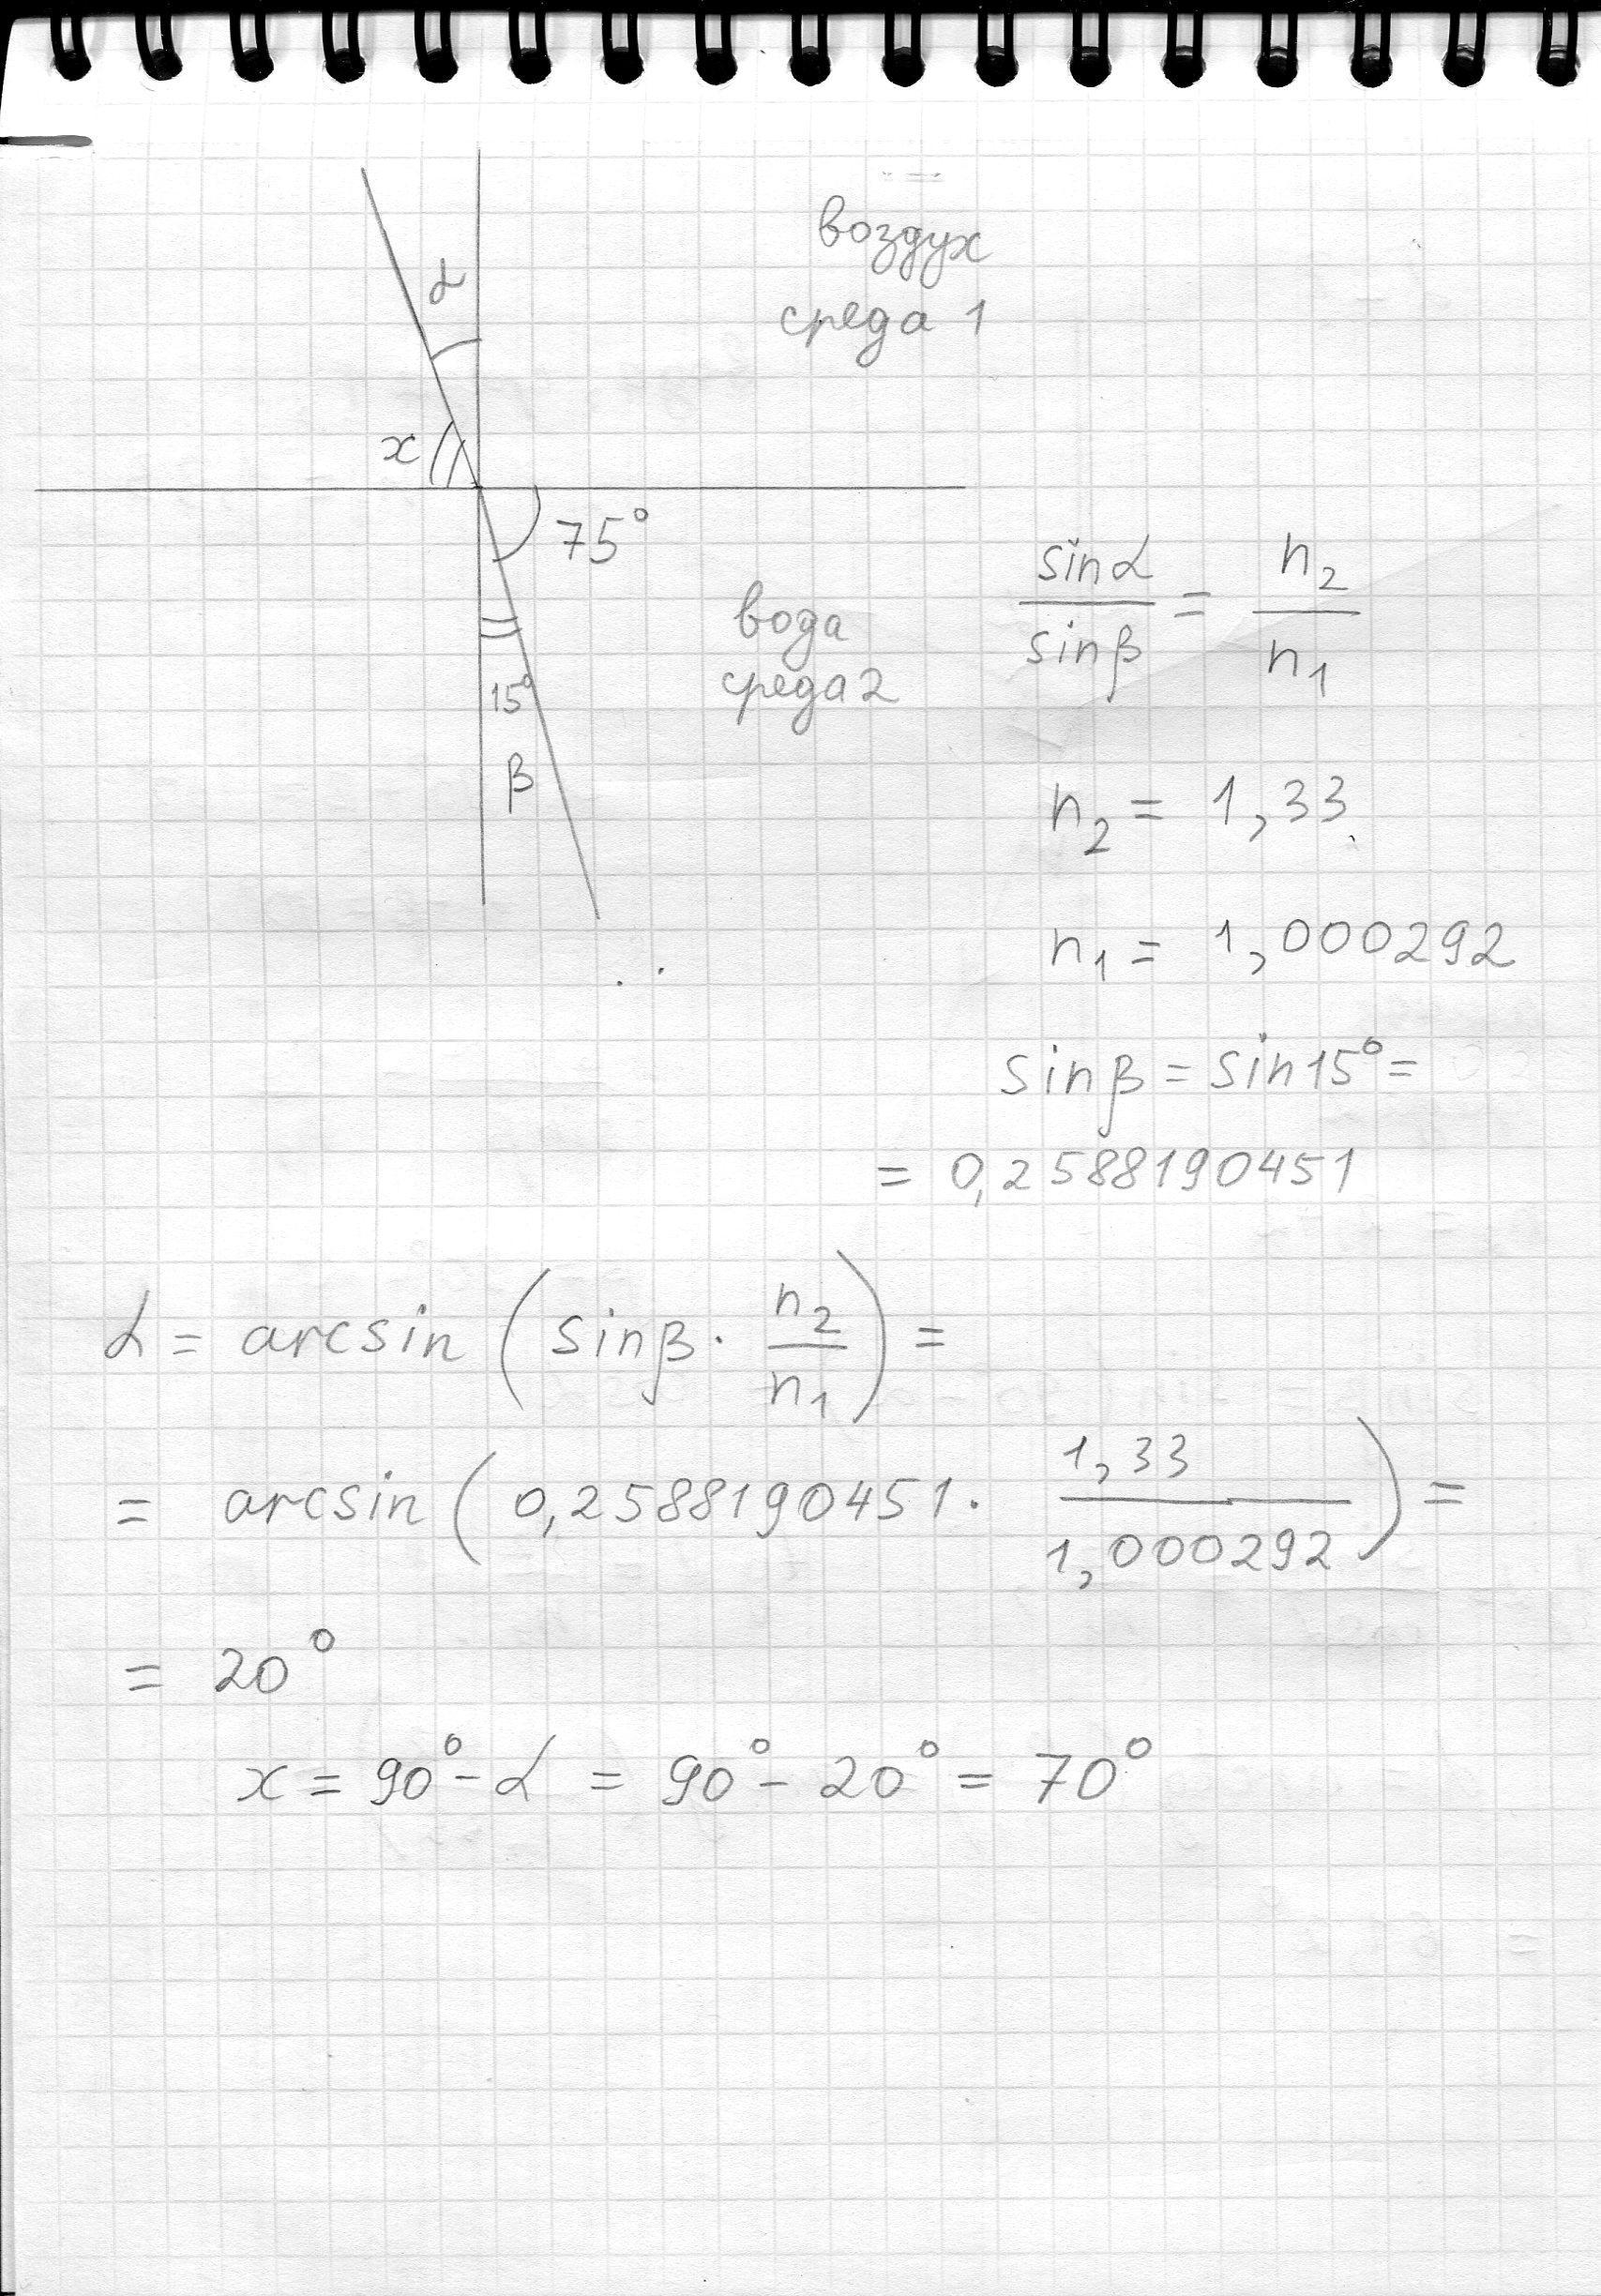 α
воздух
среда 1
x
75°
sinα / sinβ = n₂ / n₁
вода
среда 2
15°
β
n₂ = 1,33
n₁ = 1,000292
sinβ = sin15° =
= 0,2588190451
α = arcsin ( sinβ · n₂ / n₁ ) =
= arcsin ( 0,2588190451 · 1,33 / 1,000292 ) =
= 20°
x = 90° - α = 90° - 20° = 70°